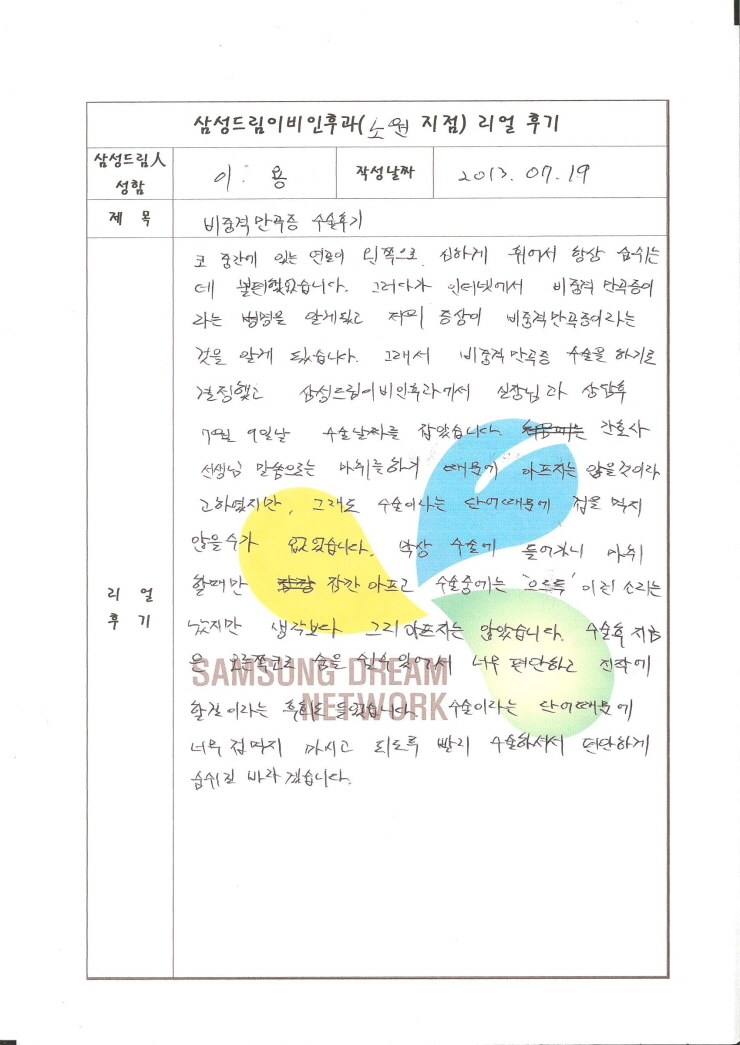 삼성드림이비인후과(노원 지점) 리얼 후기
삼성드림人 성함
이: 용
작성날짜
2013. 07. 19
제 목
비중격만곡증 수술후기
리 얼 후 기
코 중간에 있는 연골이 왼쪽으로 심하게 휘어서 항상 숨쉬는
데 불편했었습니다. 그러다가 인터넷에서 비중격 만곡증이
라는 병명을 알게됐고 저의 증상이 비중격만곡증이라는
것을 알게 됐습니다. 그래서 비중격만곡증 수술을 하기로
결정했고 삼성드림이비인후과에서 실장님과 상담후
7월 9일날 수술날짜를 잡았습니다. 간호사
선생님 말씀으로는 마취를하기 때문에 아프지는 않을것이라
고하였지만, 그래도 수술이라는 단어때문에 겁을 먹지
않을수가 없었습니다. 막상 수술에 들어가니 마취
할때만 잠깐 아프고 수술중에는 '으드득' 이런 소리는
났지만 생각보다 그리 아프지는 않았습니다. 수술후 지금
은 오른쪽코로 숨을 쉴수 있어서 너무 편안하고 진작에
할걸이라는 후회도 들었습니다. 수술이라는 단어때문에
너무 겁먹지 마시고 되도록 빨리 수술하셔서 편안하게
숨쉬길 바라겠습니다.
SAMSUNG DREAM
NETWORK